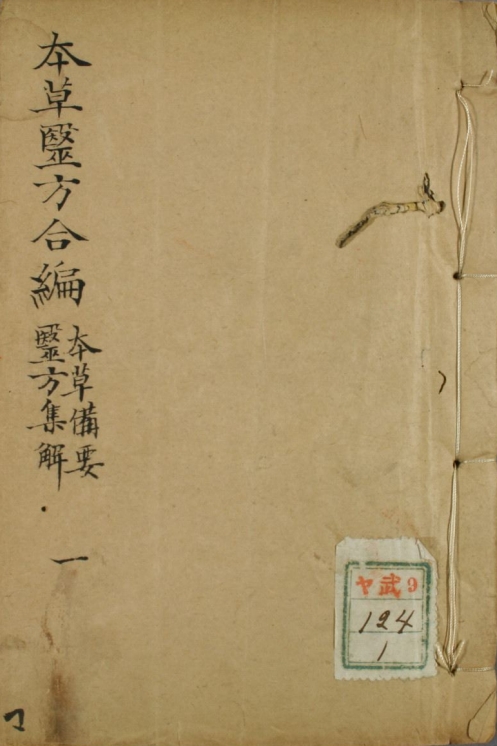 本草醫方合編
本草備要
醫方集解
一
ヤ武9
124
1